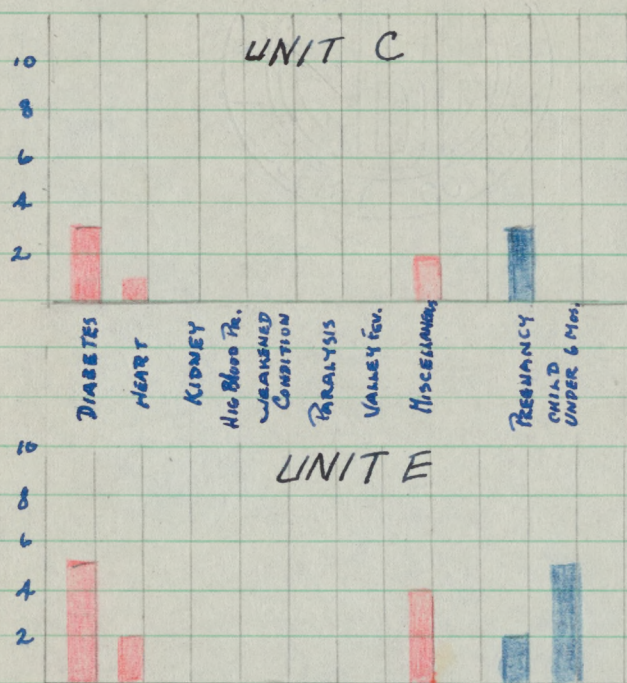 UNIT C
10
8
6
4
2
DIABETES
HEART
KIDNEY
HIG BLOOD PR.
WEAKENED
CONDITION
PARALYSIS
VALLEY FEV.
MISCELLANEOUS
PREGNANCY
CHILD
UNDER 6 MOS.
UNIT E
10
8
6
4
2